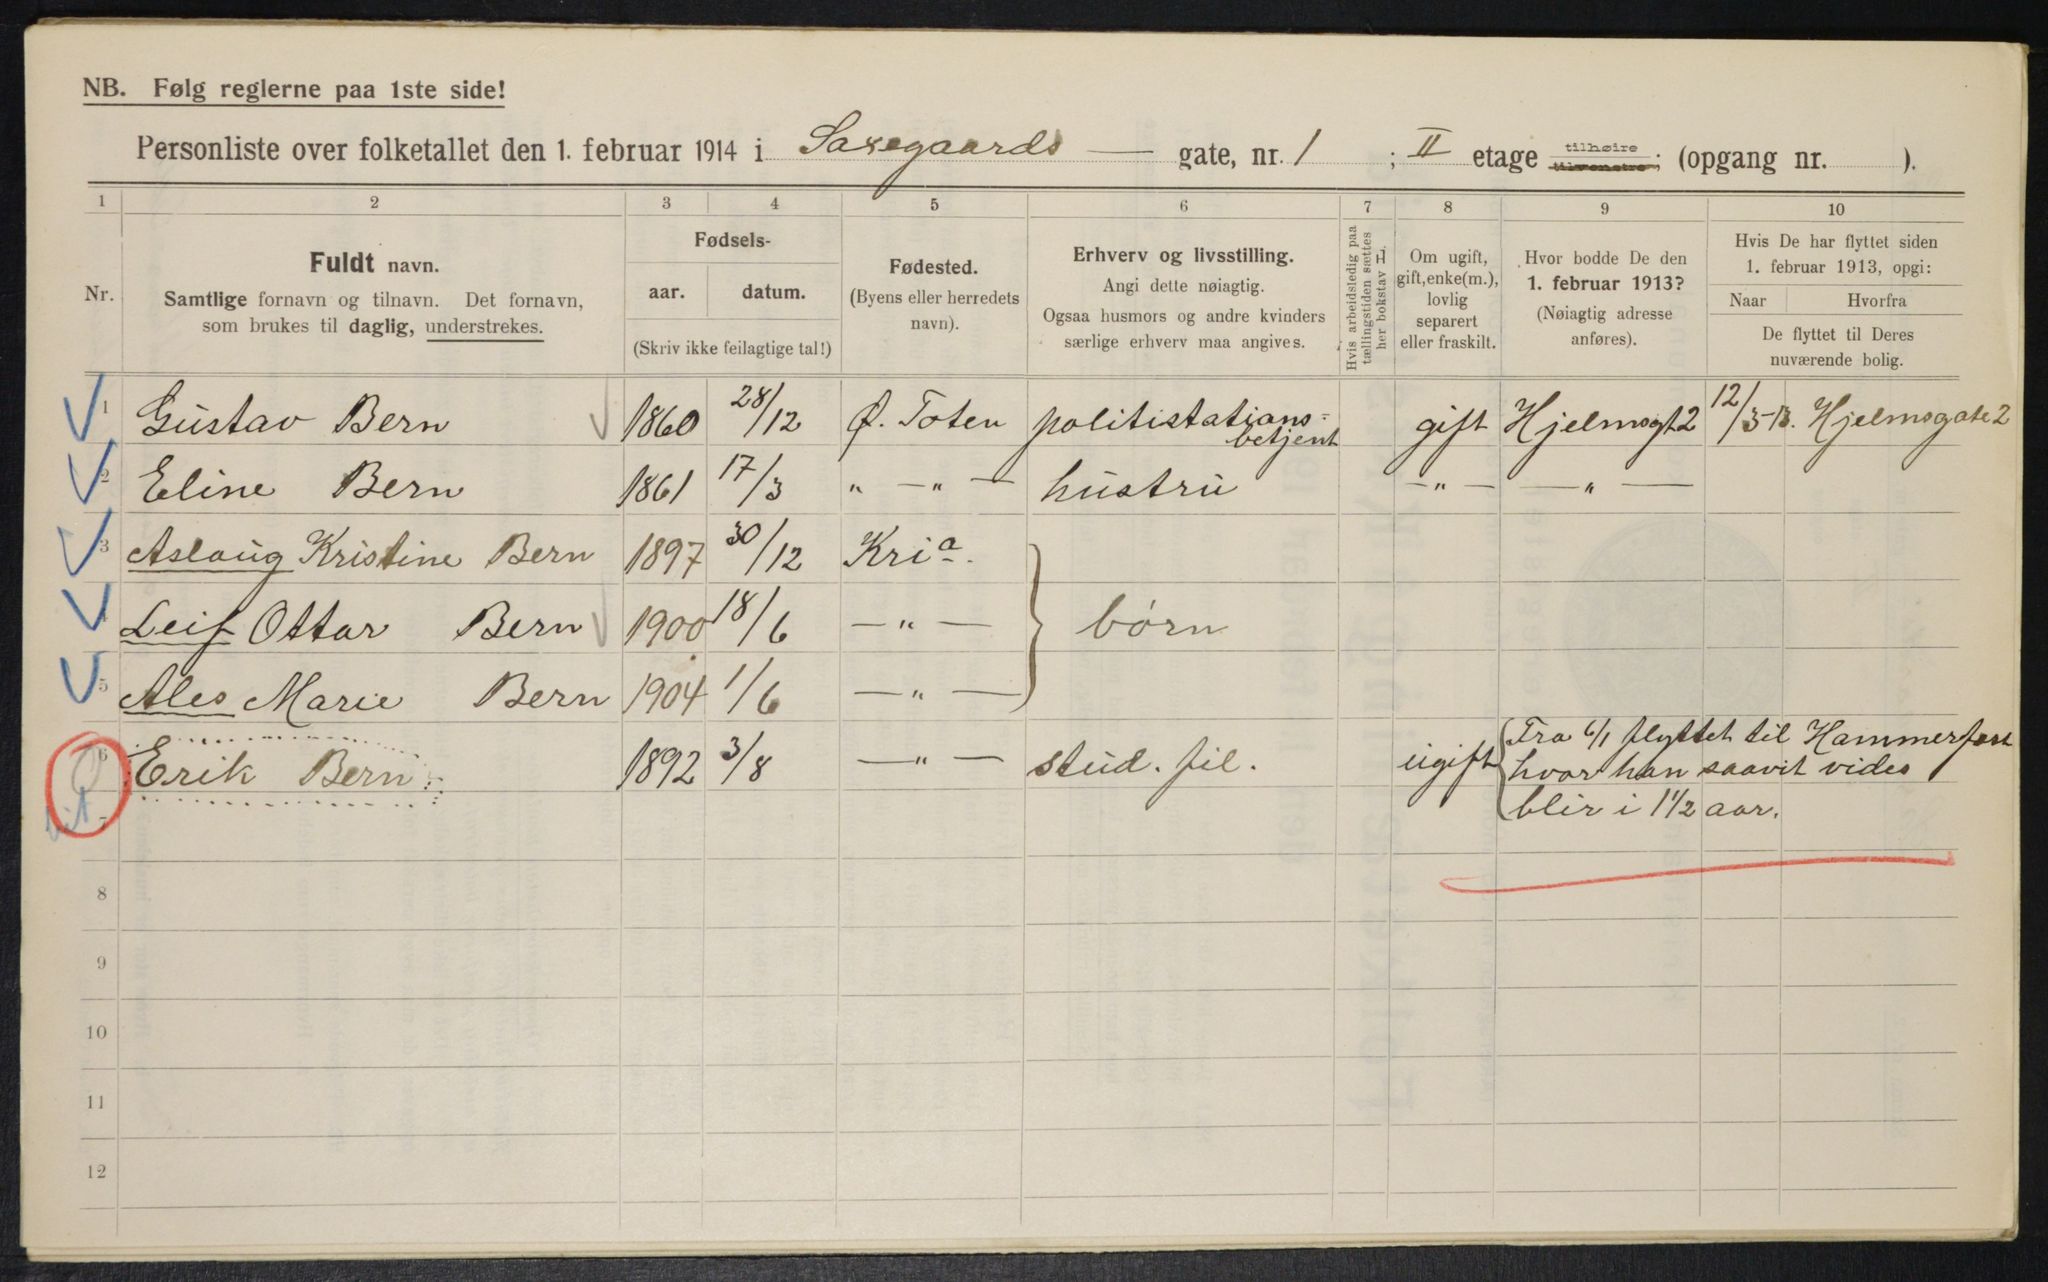 NB. Følg reglerne paa 1ste side!
Personliste over folketallet den 1. februar 1914 i Saxegaards — gate, nr. 1 ; II etage tilhøire tilvenstre; (opgang nr. ).
1 2 3 4 5 6 7 8 9 10
Nr.
Fuldt navn.
Samtlige fornavn og tilnavn. Det fornavn,
som brukes til daglig, understrekes.
Fødsels-
aar. datum.
(Skriv ikke feilagtige tal!)
Fødested.
(Byens eller herredets
navn).
Erhverv og livsstilling.
Angi dette nøiagtig.
Ogsaa husmors og andre kvinders
særlige erhverv maa angives.
Hvis arbeidsledig paa
tællingstiden sættes
her bokstav L.
Om ugift,
gift, enke(m.),
lovlig
separert
eller fraskilt.
Hvor bodde De den
1. februar 1913?
(Nøiagtig adresse
anføres).
Hvis De har flyttet siden
1. februar 1913, opgi:
Naar Hvorfra
De flyttet til Deres
nuværende bolig.
1 Gustav Bern 1860 28/12 Ø. Toten politistations-
betjent gift Hjelmsgt 2 12/3-13. Hjelmsgate 2
2 Eline Bern 1861 17/3 " — " — hustru — " — — " —
3 Aslaug Kristine Bern 1897 30/12 Kria.
4 Leif Ottar Bern 1900 18/6 — " — børn
5 Ales Marie Bern 1904 1/6 — " —
6 Erik Bern 1892 3/8 — " — stud. fil. ugift Fra 6/1 flyttet til Hammerfest
hvor han saavit vides
7 blir i 1 1/2 aar.
8
9
10
11
12